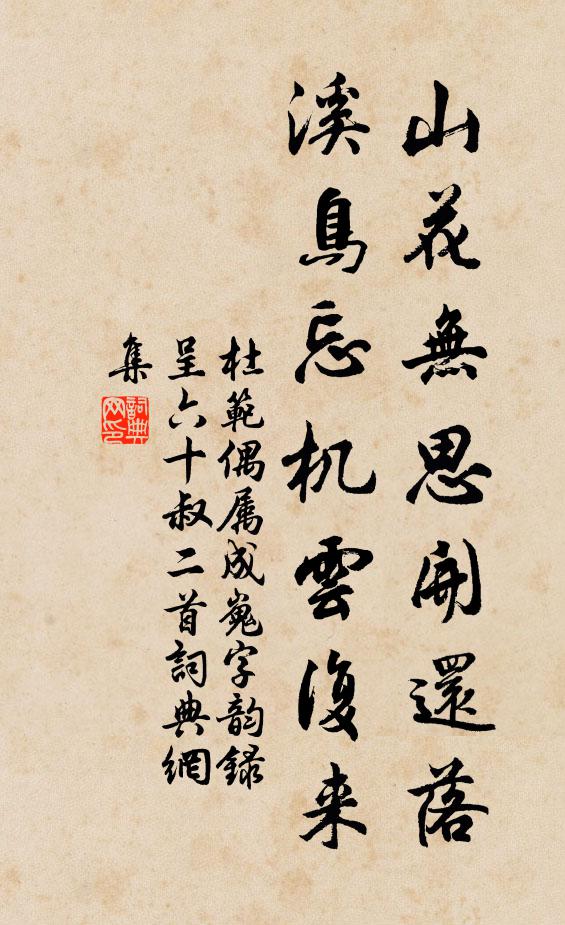 山花無思開還落
溪鳥忘机雲復来
杜範偶属成嵬字韵録
呈六十叔二首詞典網
集
詞典
网印